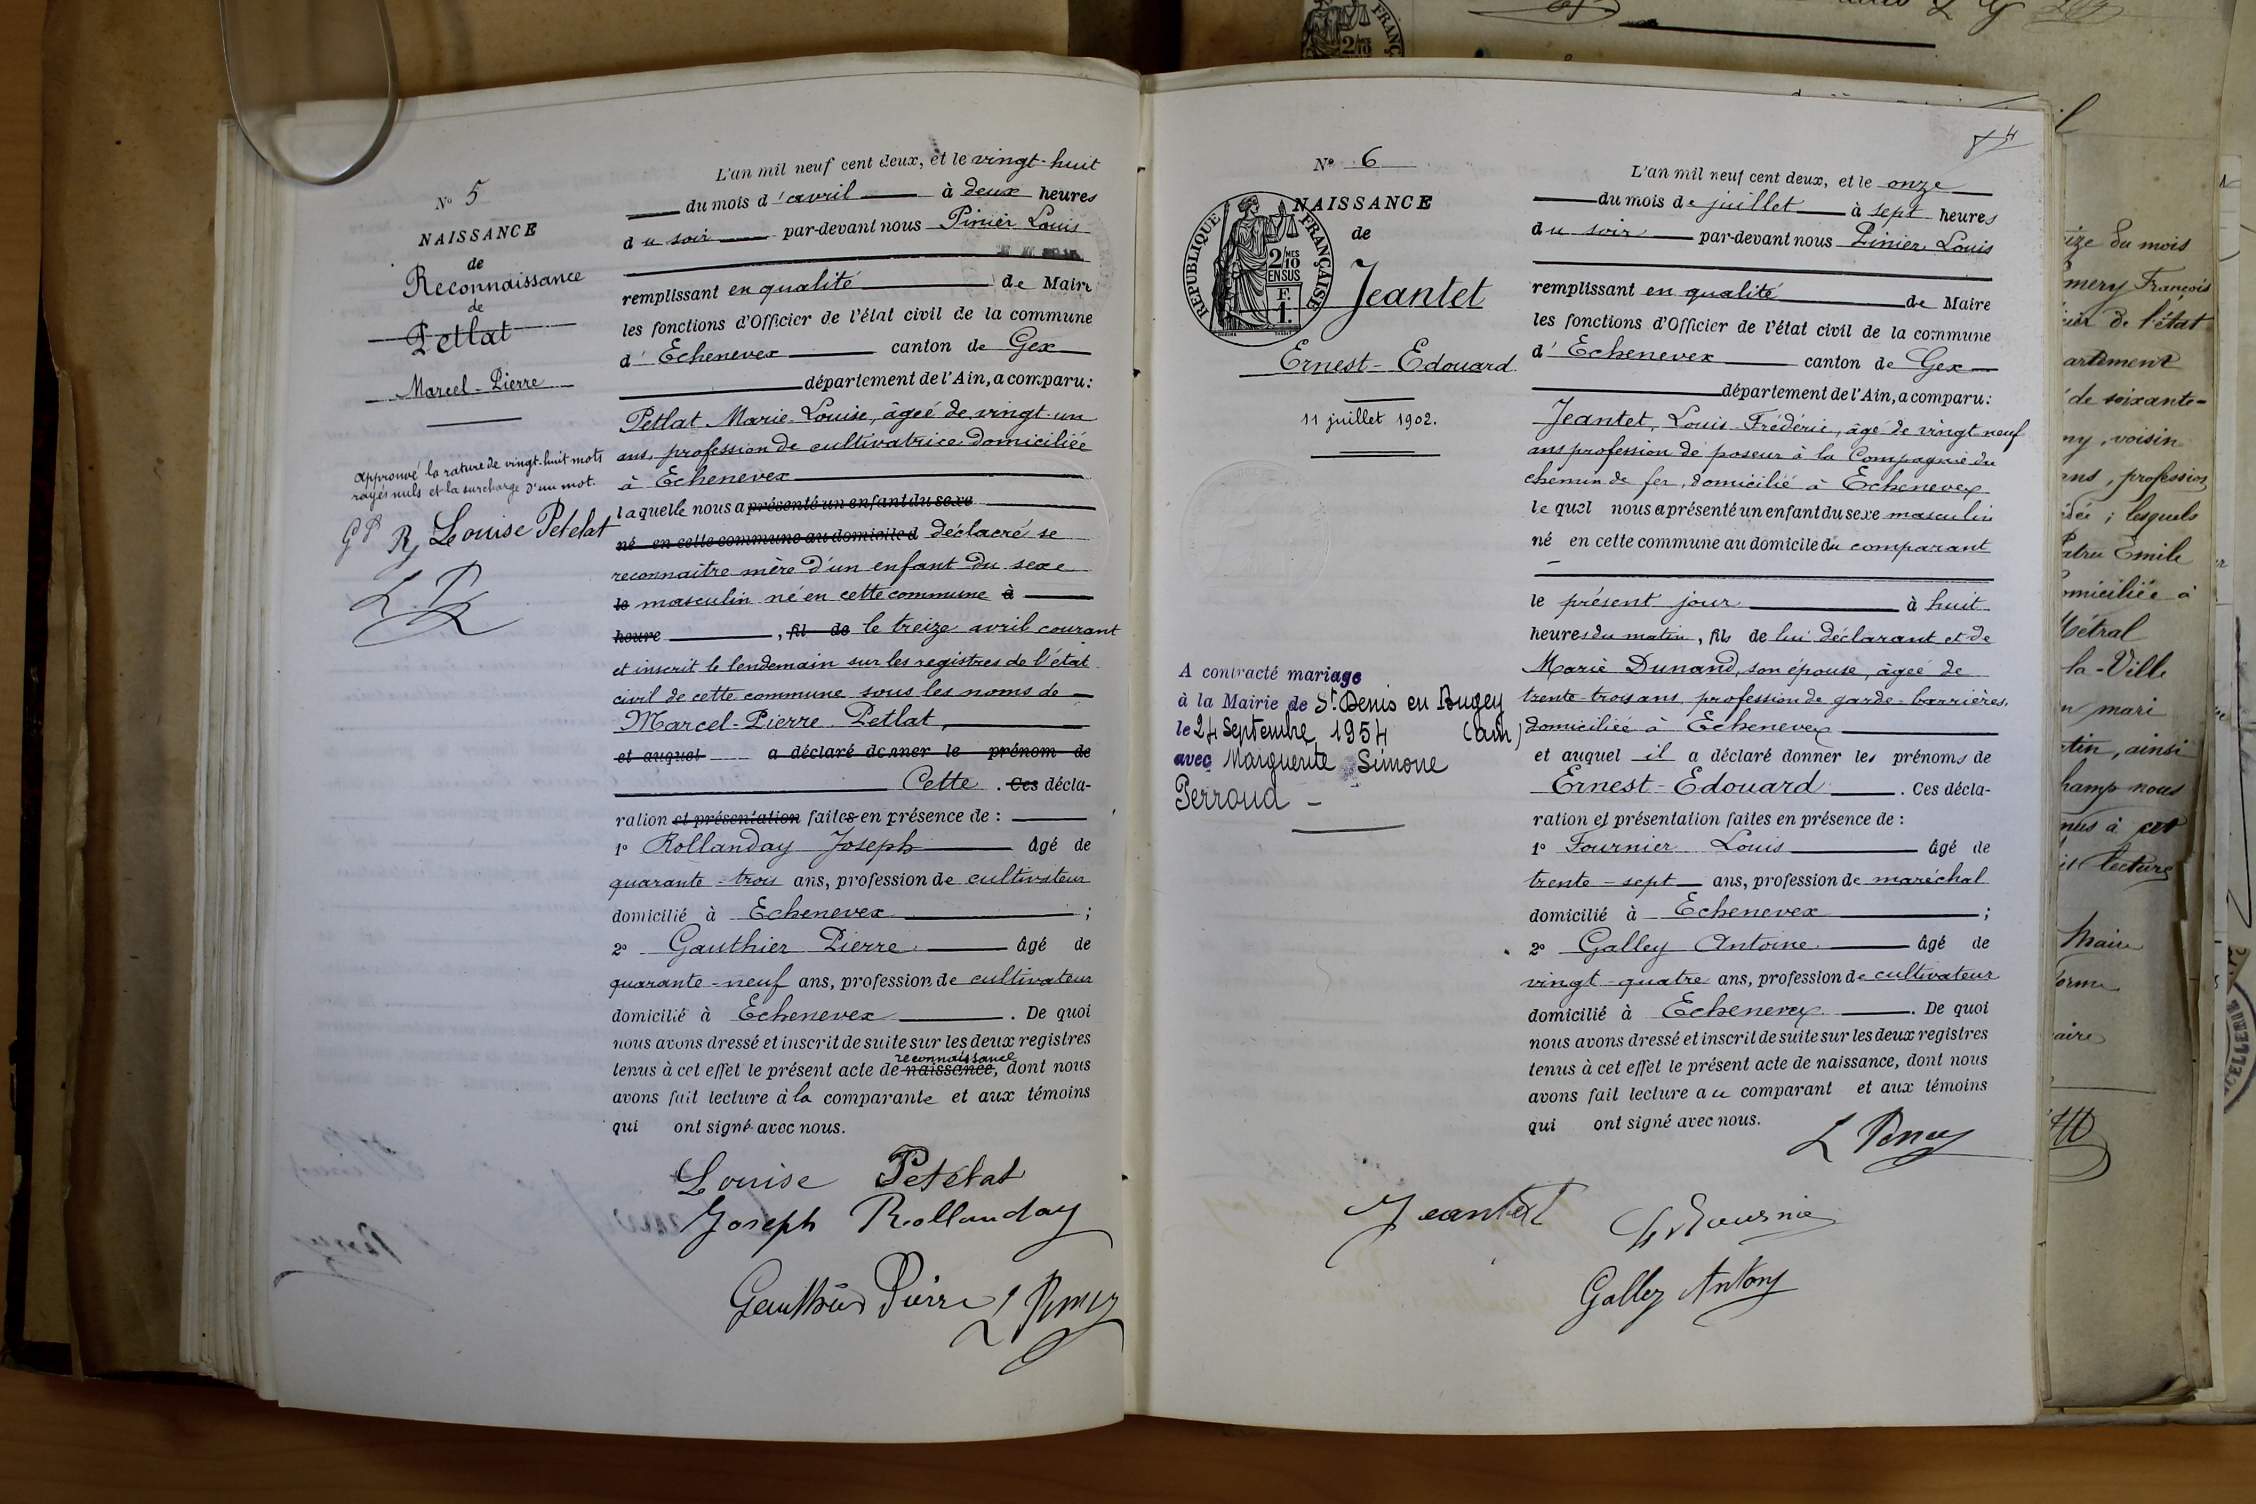 N° 5
NAISSANCE
de
Reconnaissance
de
Petlat
Marcel-Pierre
approuvé la rature de vingt-huit mots
rayés nuls et la surcharge d'un mot.
Louise Petelat
L'an mil neuf cent deux, et le vingt-huit
du mois d'avril à deux heures
du soir par-devant nous Pinier Louis
remplissant en qualité de Maire
les fonctions d'Officier de l'état civil de la commune
d'Echenevex canton de Gex
département de l'Ain, a comparu:
Petlat Marie-Louise, âgée de vingt-un
ans, profession de cultivatrice domiciliée
à Echenevex
laquelle nous a présenté un enfant du sexe
né en cette commune au domicile d déclaré se
reconnaitre mère d'un enfant du sexe
le masculin né en cette commune à
heure , fil de le treize avril courant
et inscrit le lendemain sur les registres de l'état
civil de cette commune sous les noms de
Marcel-Pierre Petlat,
et auquel a déclaré donner le prénom de
Cette . Ces décla-
ration et présentation faites en présence de :
1° Rollanday Joseph âgé de
quarante-trois ans, profession de cultivateur
domicilié à Echenevex ;
2° Gauthier Pierre âgé de
quarante-neuf ans, profession de cultivateur
domicilié à Echenevex . De quoi
nous avons dressé et inscrit de suite sur les deux registres
reconnaissance
tenus à cet effet le présent acte de naissance, dont nous
avons fait lecture à la comparante et aux témoins
qui ont signé avec nous.
Louise Petelat
Joseph Rollanday
Gauthier Pierre
N° 6
NAISSANCE
de
Jeantet
Ernest-Edouard
11 juillet 1902.
REPUBLIQUE FRANÇAISE
2/10 MES
EN SUS
F.
1.
A contracté mariage
à la Mairie de St Denis en Bugey
le 24 Septembre 1954 (Ain)
avec Marguerite Simone
Perroud
L'an mil neuf cent deux, et le onze
du mois de juillet à sept heures
du soir par-devant nous Pinier Louis
remplissant en qualité de Maire
les fonctions d'Officier de l'état civil de la commune
d'Echenevex canton de Gex
département de l'Ain, a comparu:
Jeantet, Louis-Frédéric, âgé de vingt neuf
ans profession de poseur à la Compagnie du
chemin de fer, domicilié à Echenevex
lequel nous a présenté un enfant du sexe masculin
né en cette commune au domicile du comparant
le présent jour à huit
heures du matin, fils de lui déclarant et de
Marie Dunand, son épouse, âgée de
trente-trois ans, profession de garde-barrières,
domiciliée à Echenevex
et auquel il a déclaré donner les prénoms de
Ernest-Edouard . Ces décla-
ration et présentation faites en présence de :
1° Fournier Louis âgé de
trente-sept ans, profession de maréchal
domicilié à Echenevex ;
2° Galley Antoine âgé de
vingt-quatre ans, profession de cultivateur
domicilié à Echenevex . De quoi
nous avons dressé et inscrit de suite sur les deux registres
tenus à cet effet le présent acte de naissance, dont nous
avons fait lecture au comparant et aux témoins
qui ont signé avec nous.
Jeantet
Galley Antony
du mois
mery François
de l'état
artement
de soixante-
ny, voisin
ans, profession
; lesquels
Emile
omiciliée à
Métral
la-Ville
mari
tin, ainsi
hamp nous
à cet
lecture
Maire